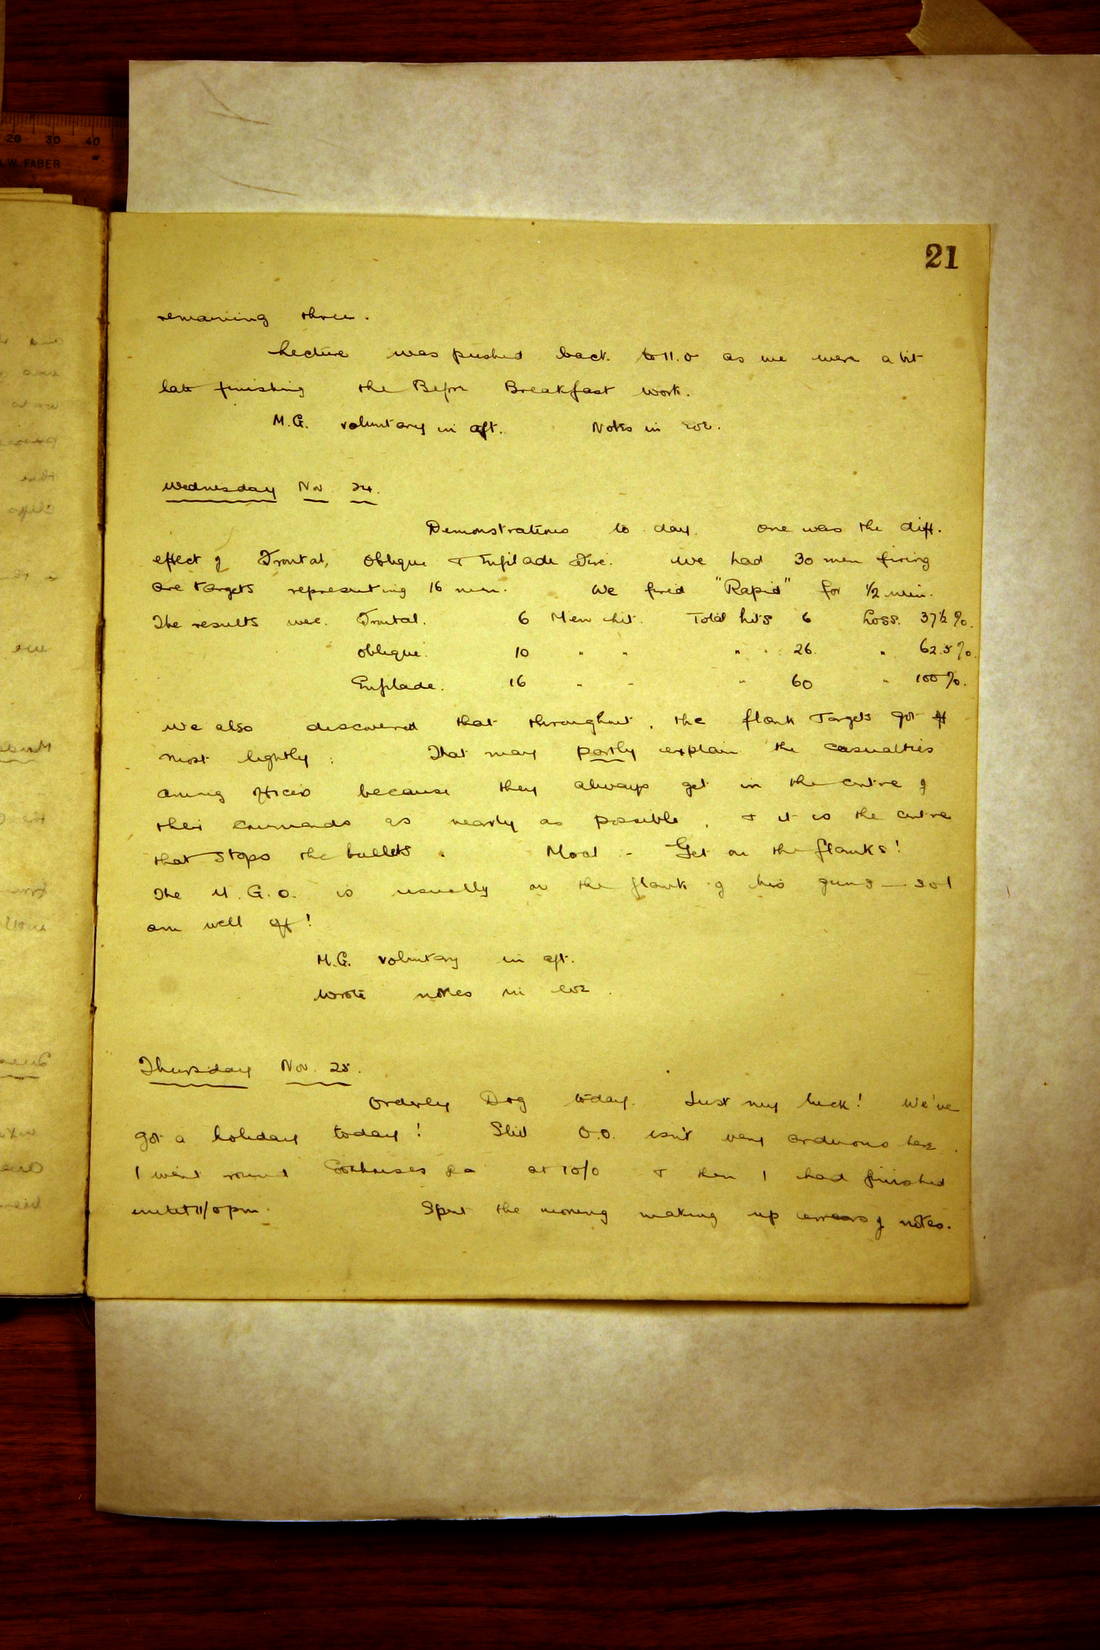 21
remaining three.
Lecture was pushed back to 11.0 as we were a bit
late finishing the Before Breakfast work.
M.G. voluntary in aft. Notes in eve.
Wednesday Nov 24.
Demonstrations to day. One was the diff.
effect of Frontal, Oblique & Enfilade Fire. We had 30 men firing
are targets representing 16 men. We fired "Rapid" for 1/2 min.
The results were. Frontal. 6 Men hit. Total hits 6 Loss. 37½%.
Oblique. 10 " " " " 26. " 62.5%.
Enfilade. 16 " " " 60 " 100%.
We also discovered that throughout, the flank Targets got off
most lightly: That may partly explain the casualties
among officers because they always get in the centre of
their commands as nearly as possible, & it is the centre
that stops the bullets. Moral - Get on the flanks!
The M.G.O. is usually on the flank of his guns — so I
am well off!
M.G. voluntary in aft.
Wrote notes in eve.
Thursday Nov. 25.
Orderly Dog today. Just my luck! We've
got a holiday today! Still O.O. isn't very arduous here.
I went round at 10/0 & then I had finished
until 11/0 pm. Spent the morning making up arrears of notes.
20 30 40
W. FABER